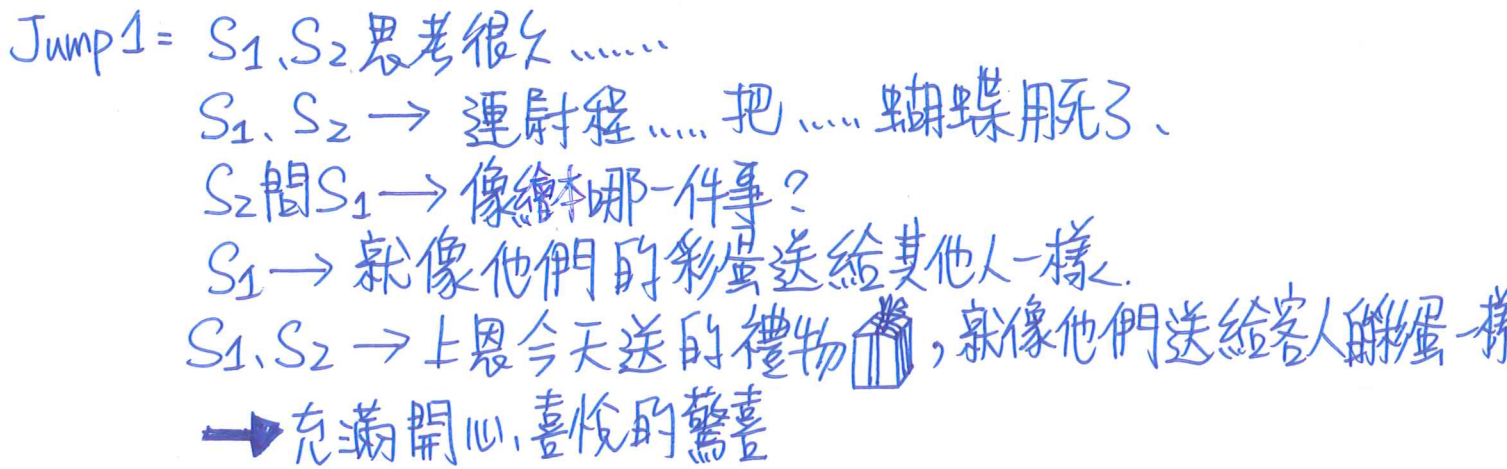 Jump1= S1、S2思考很久.......
S1、S2 → 連尉程..... 把..... 蝴蝶用死了、
S2問S1 → 像繪本哪一件事?
S1 → 就像他們的彩蛋送給其他人一樣.
S1、S2 → 上恩今天送的禮物,就像他們送給客人的彩蛋一樣
→ 充滿開心、喜悅的驚喜